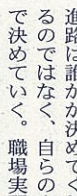 進路は誰かが決めて
るのではなく、自らの
で決めていく。職場実